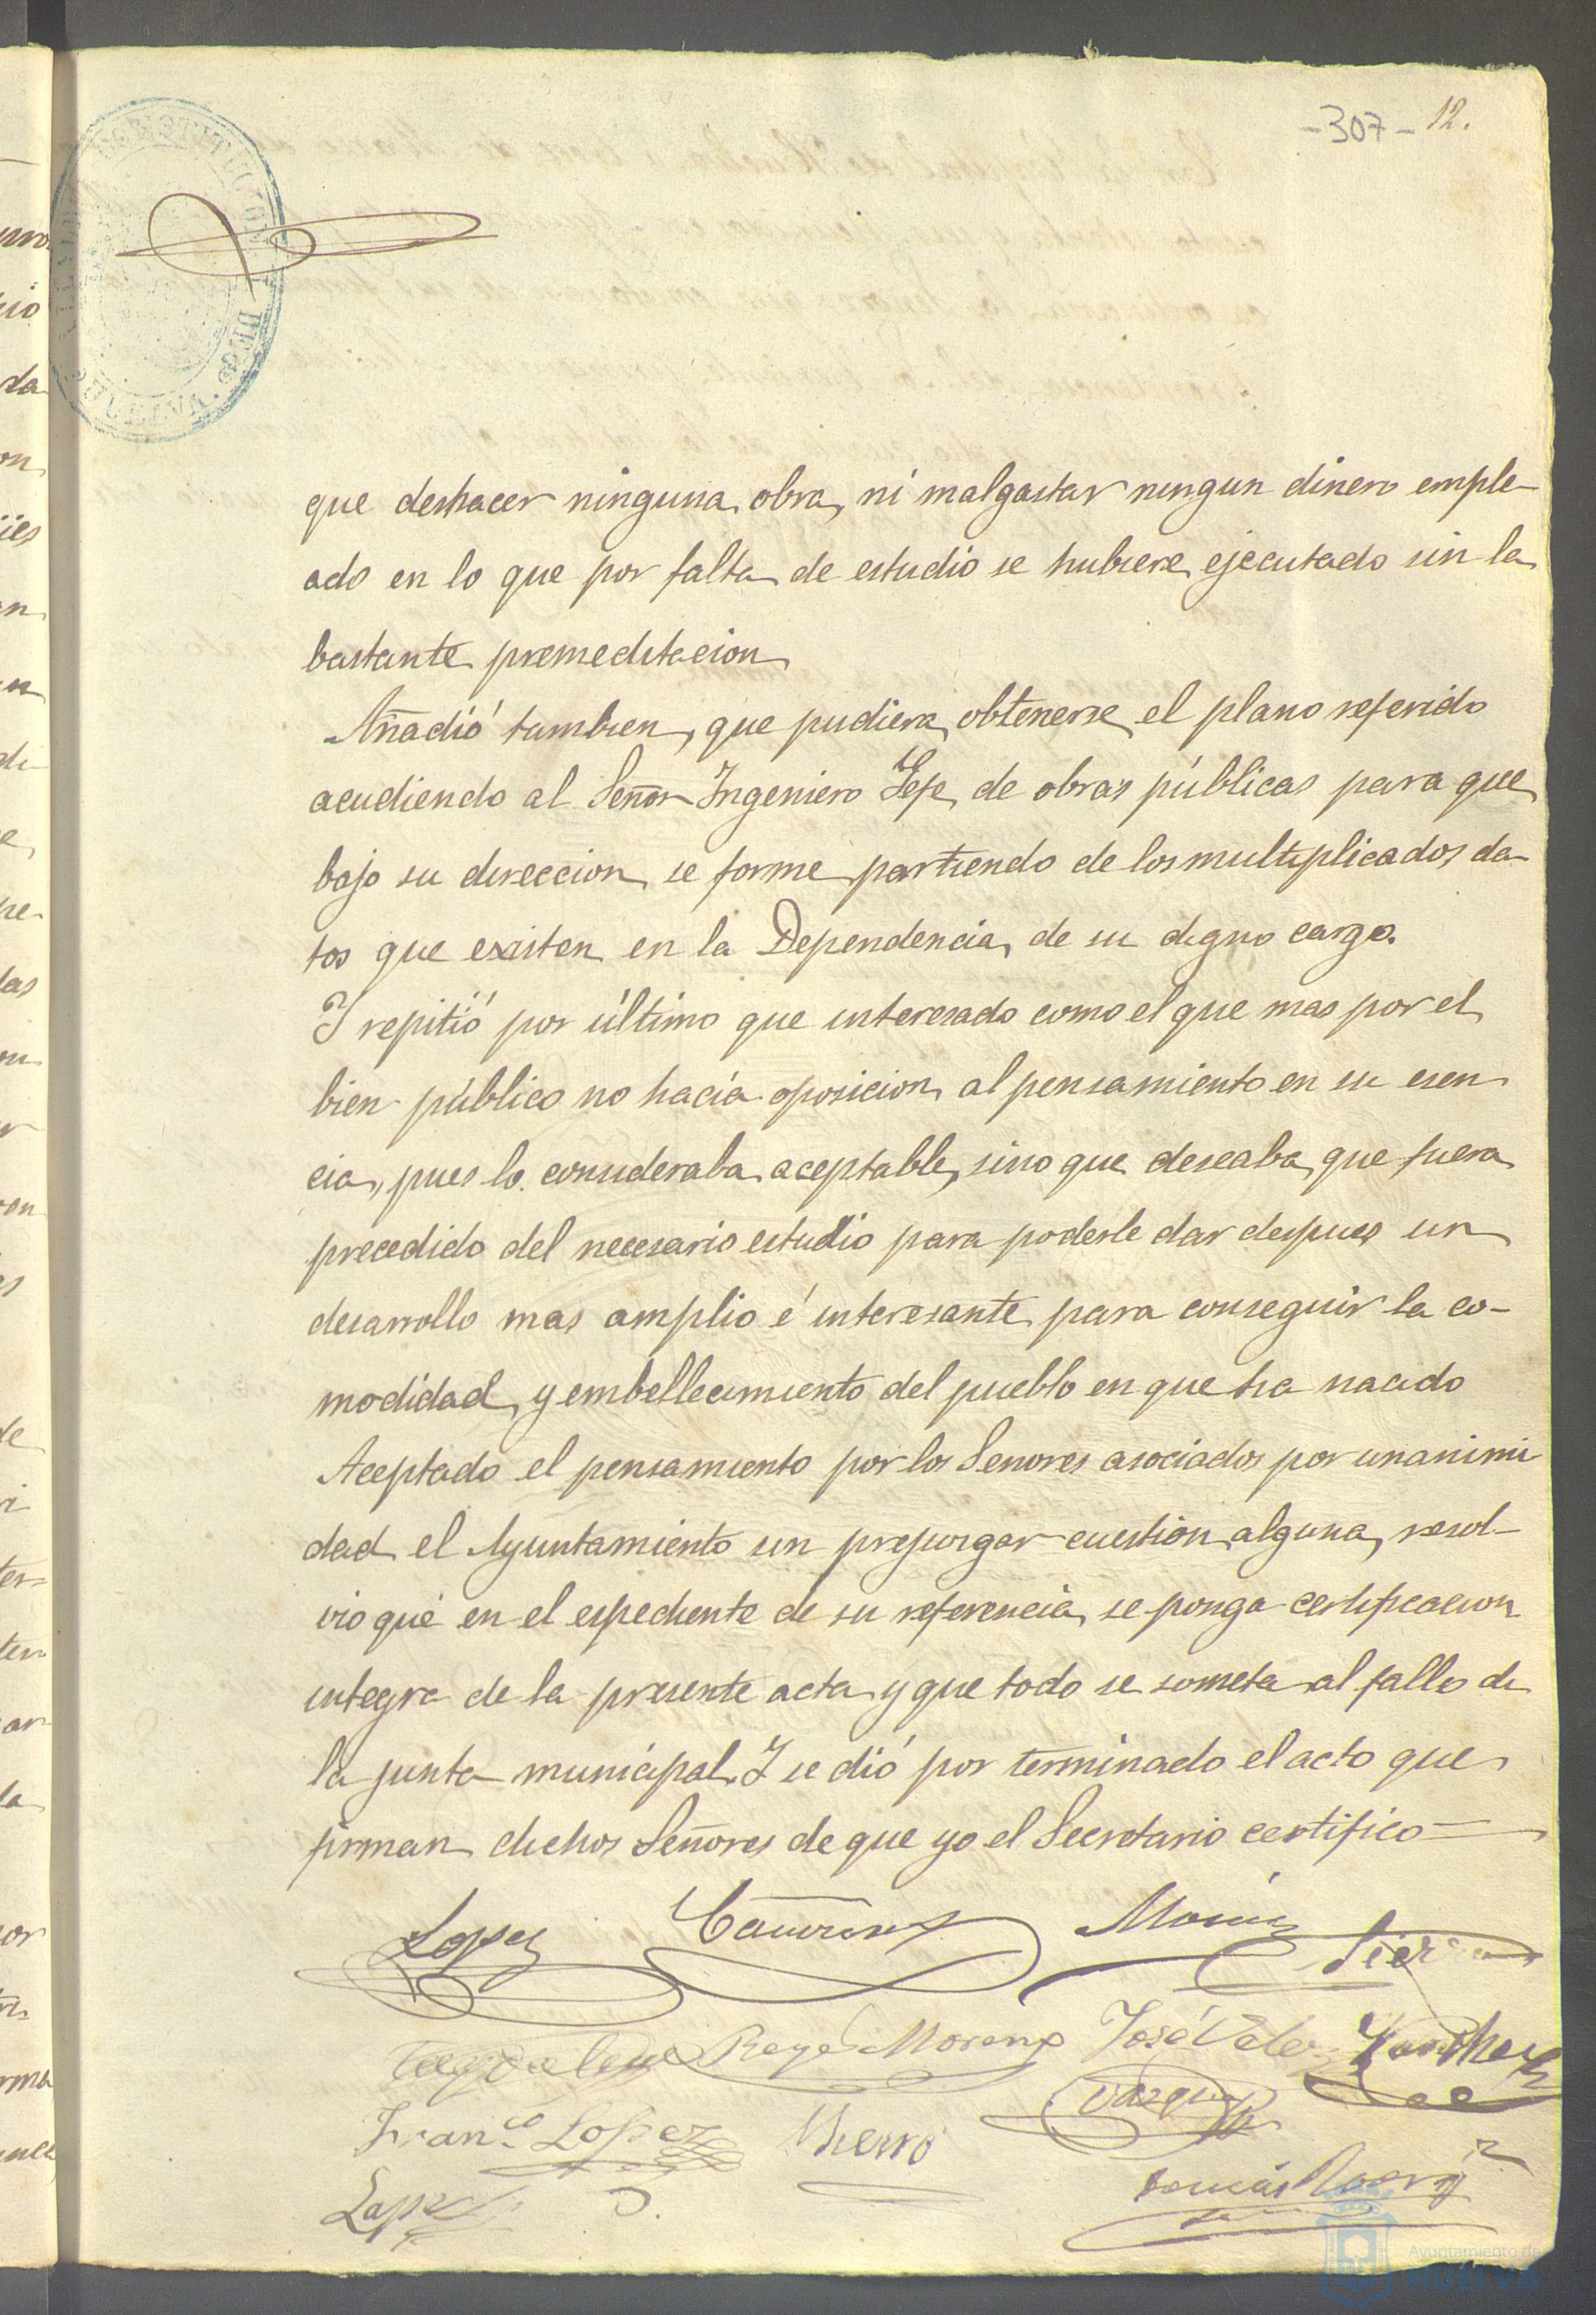 -307- 12.
CONSTITUCIONAL DE HUELVA
que deshacer ninguna obra, ni malgastar ningun dinero emple-
ado en lo que por falta de estudio se hubiere ejecutado sin la
bastante premeditacion
Añadió tambien, que pudiera obtenerse el plano referido
acudiendo al Señor Ingeniero Gefe de obras públicas para que
bajo su direccion se forme partiendo de los multiplicados da-
tos que existen en la Dependencia de su digno cargo.
Y repitió por último que interesado como el que mas por el
bien público no hacía oposicion al pensamiento en su esen
cia, pues lo consideraba aceptable, sino que deseaba que fuera
precedido del necesario estudio para poderle dar despues un
desarrollo mas amplio é interesante para conseguir la co-
modidad y embellecimiento del pueblo en que ha nacido
Aceptado el pensamiento por los Senores asociados por unanimi
dad el Ayuntamiento sin prejuzgar cuestion alguna, resol-
vio que en el espediente de su referencia se ponga certificacion
integra de la presente acta y que todo se someta al fallo de
la junta municipal. Y se dió por terminado el acto que
firman dichos Señores de que yo el Secretario certifico=
Lopez
Sierra
Reyes Moreno José Velez Sanchez
Vazquez
Franco Lopez Hierro
Lopez
Tomás
Ayuntamiento de
HUELVA